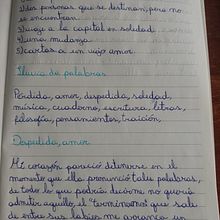 2) dos personas que se destinan, pero no
se encuentran
3) viaje a la capital en soledad
4) una mudanza
5) cartas a un viejo amor
Lluvia de palabras
Pérdida, amor, despedida, soledad,
música, cuaderno, escritura, letras,
filosofía, pensamientos, traición.
Despedida, amor
Mi corazón pareció detenerse en el
momento que ella pronunció tales palabras,
de todo lo que podría decirme no quería
admitir aquello, el "terminemos" que salía
de entre sus labios me